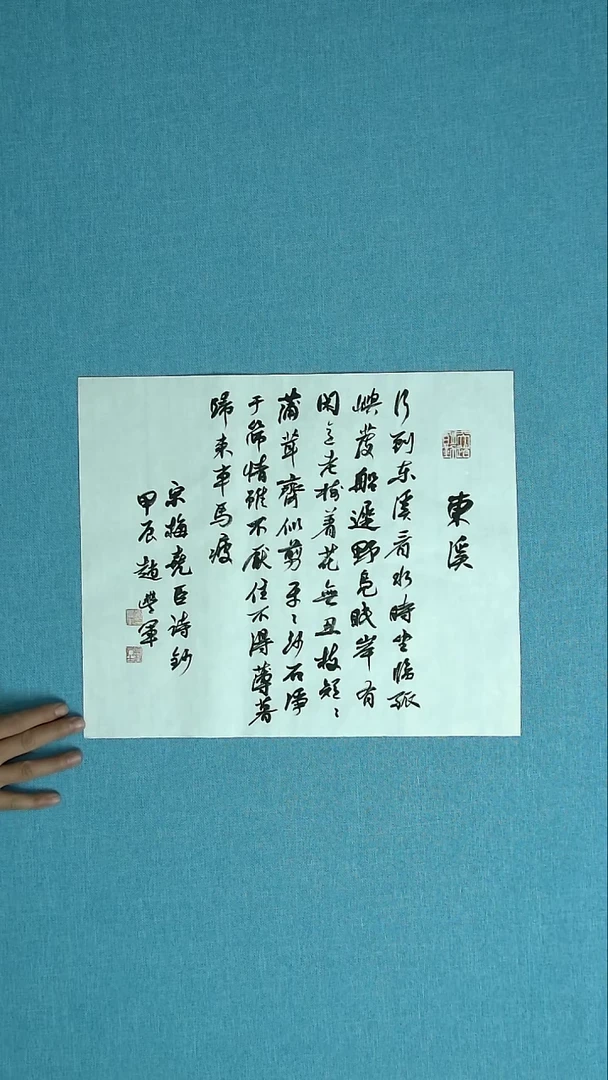 東溪
行到东溪看水時坐臨孤
嶼發船遲野凫眠岸有
閑意老树着花無丑枝短〻
蒲茸齊似剪平〻沙石淨
于篩情雖不厭住不得薄暮
歸来車馬疲
宋梅堯臣诗鈔
甲辰趙豐軍